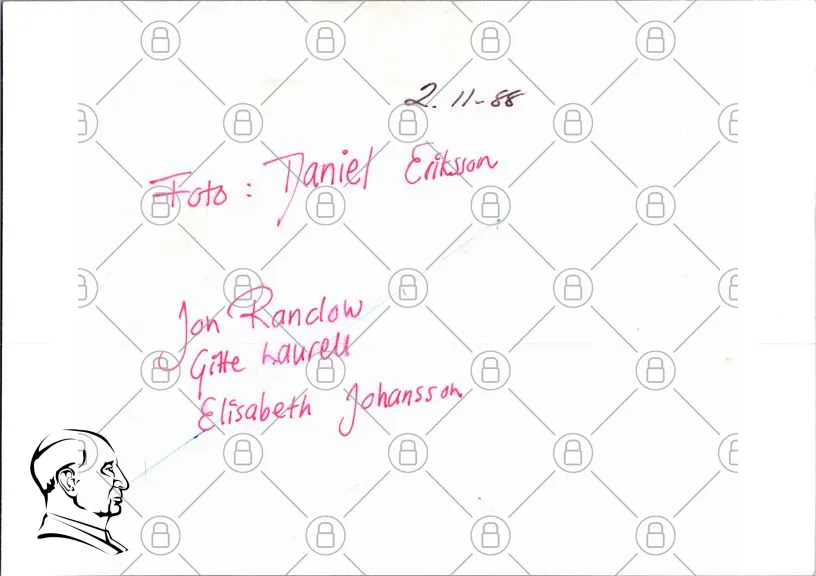 2. 11-88
Foto: Daniel Eriksson
Jon Randow
Gitte Laurell
Elisabeth Johansson